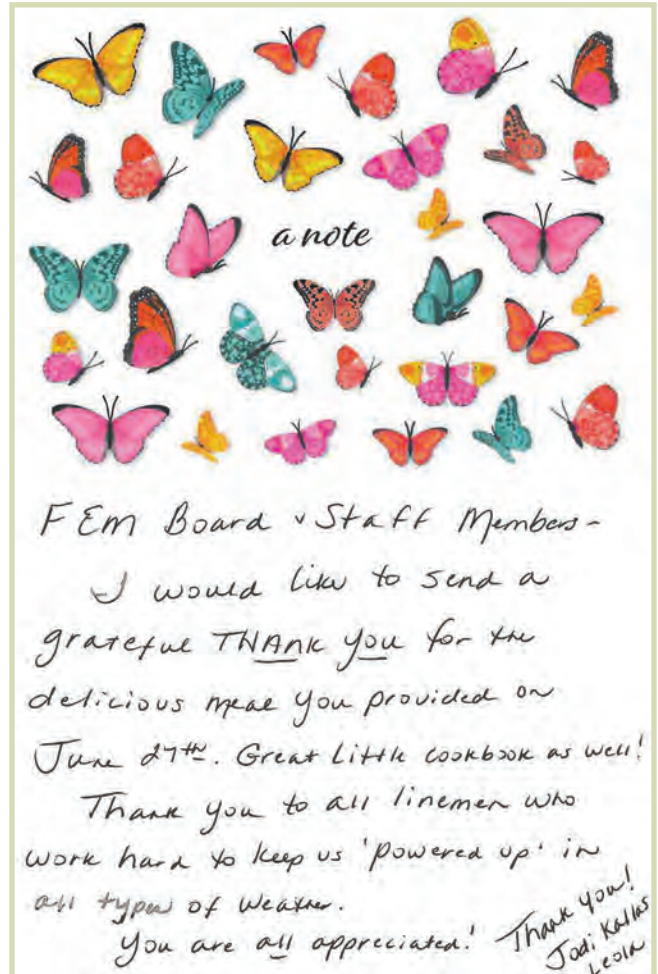 a note
FEM Board & Staff Members-
I would like to send a
grateful THANK YOU for the
delicious meal you provided on
June 27th. Great little cookbook as well!
Thank you to all linemen who
work hard to keep us 'powered up' in
all types of weather.
You are all appreciated!
Thank you!
Jodi Kallas
Leola